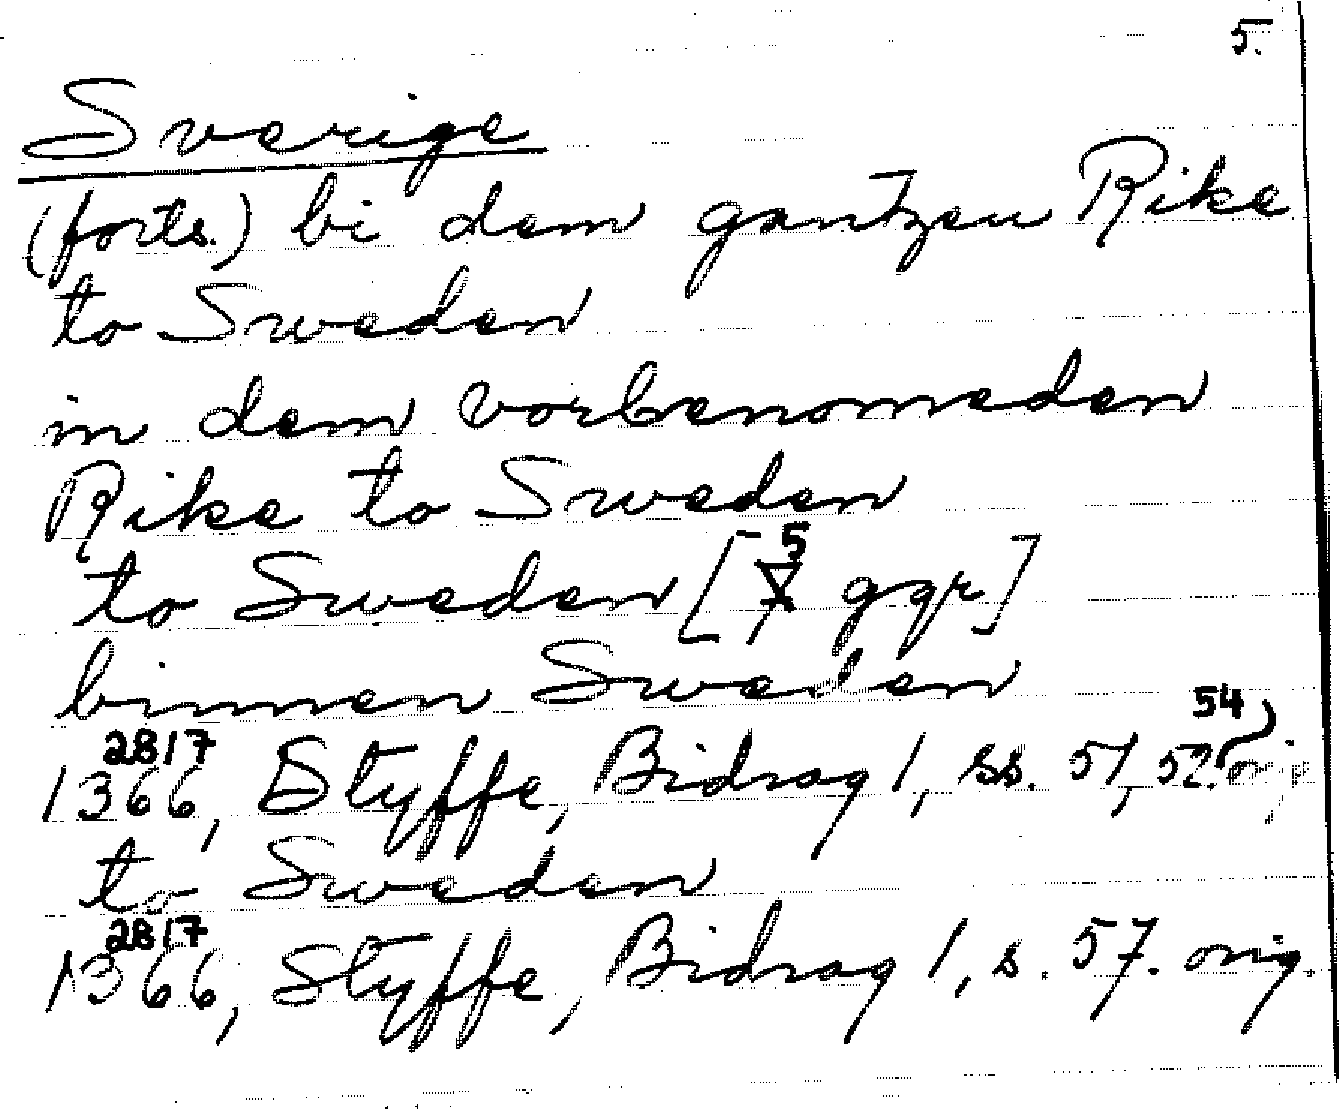 5.
Sverige
(forts.) bi dem gantzen Rike
to Sweden
in dem vorbenomeden
Rike to Sweden
to Sweden [5 ggr]
binnen Sweden
54
2817
1366, Styffe, Bidrag 1, ss. 51, 52. orig.
to Sweden
2817
1366, Styffe, Bidrag 1, s. 57. orig.